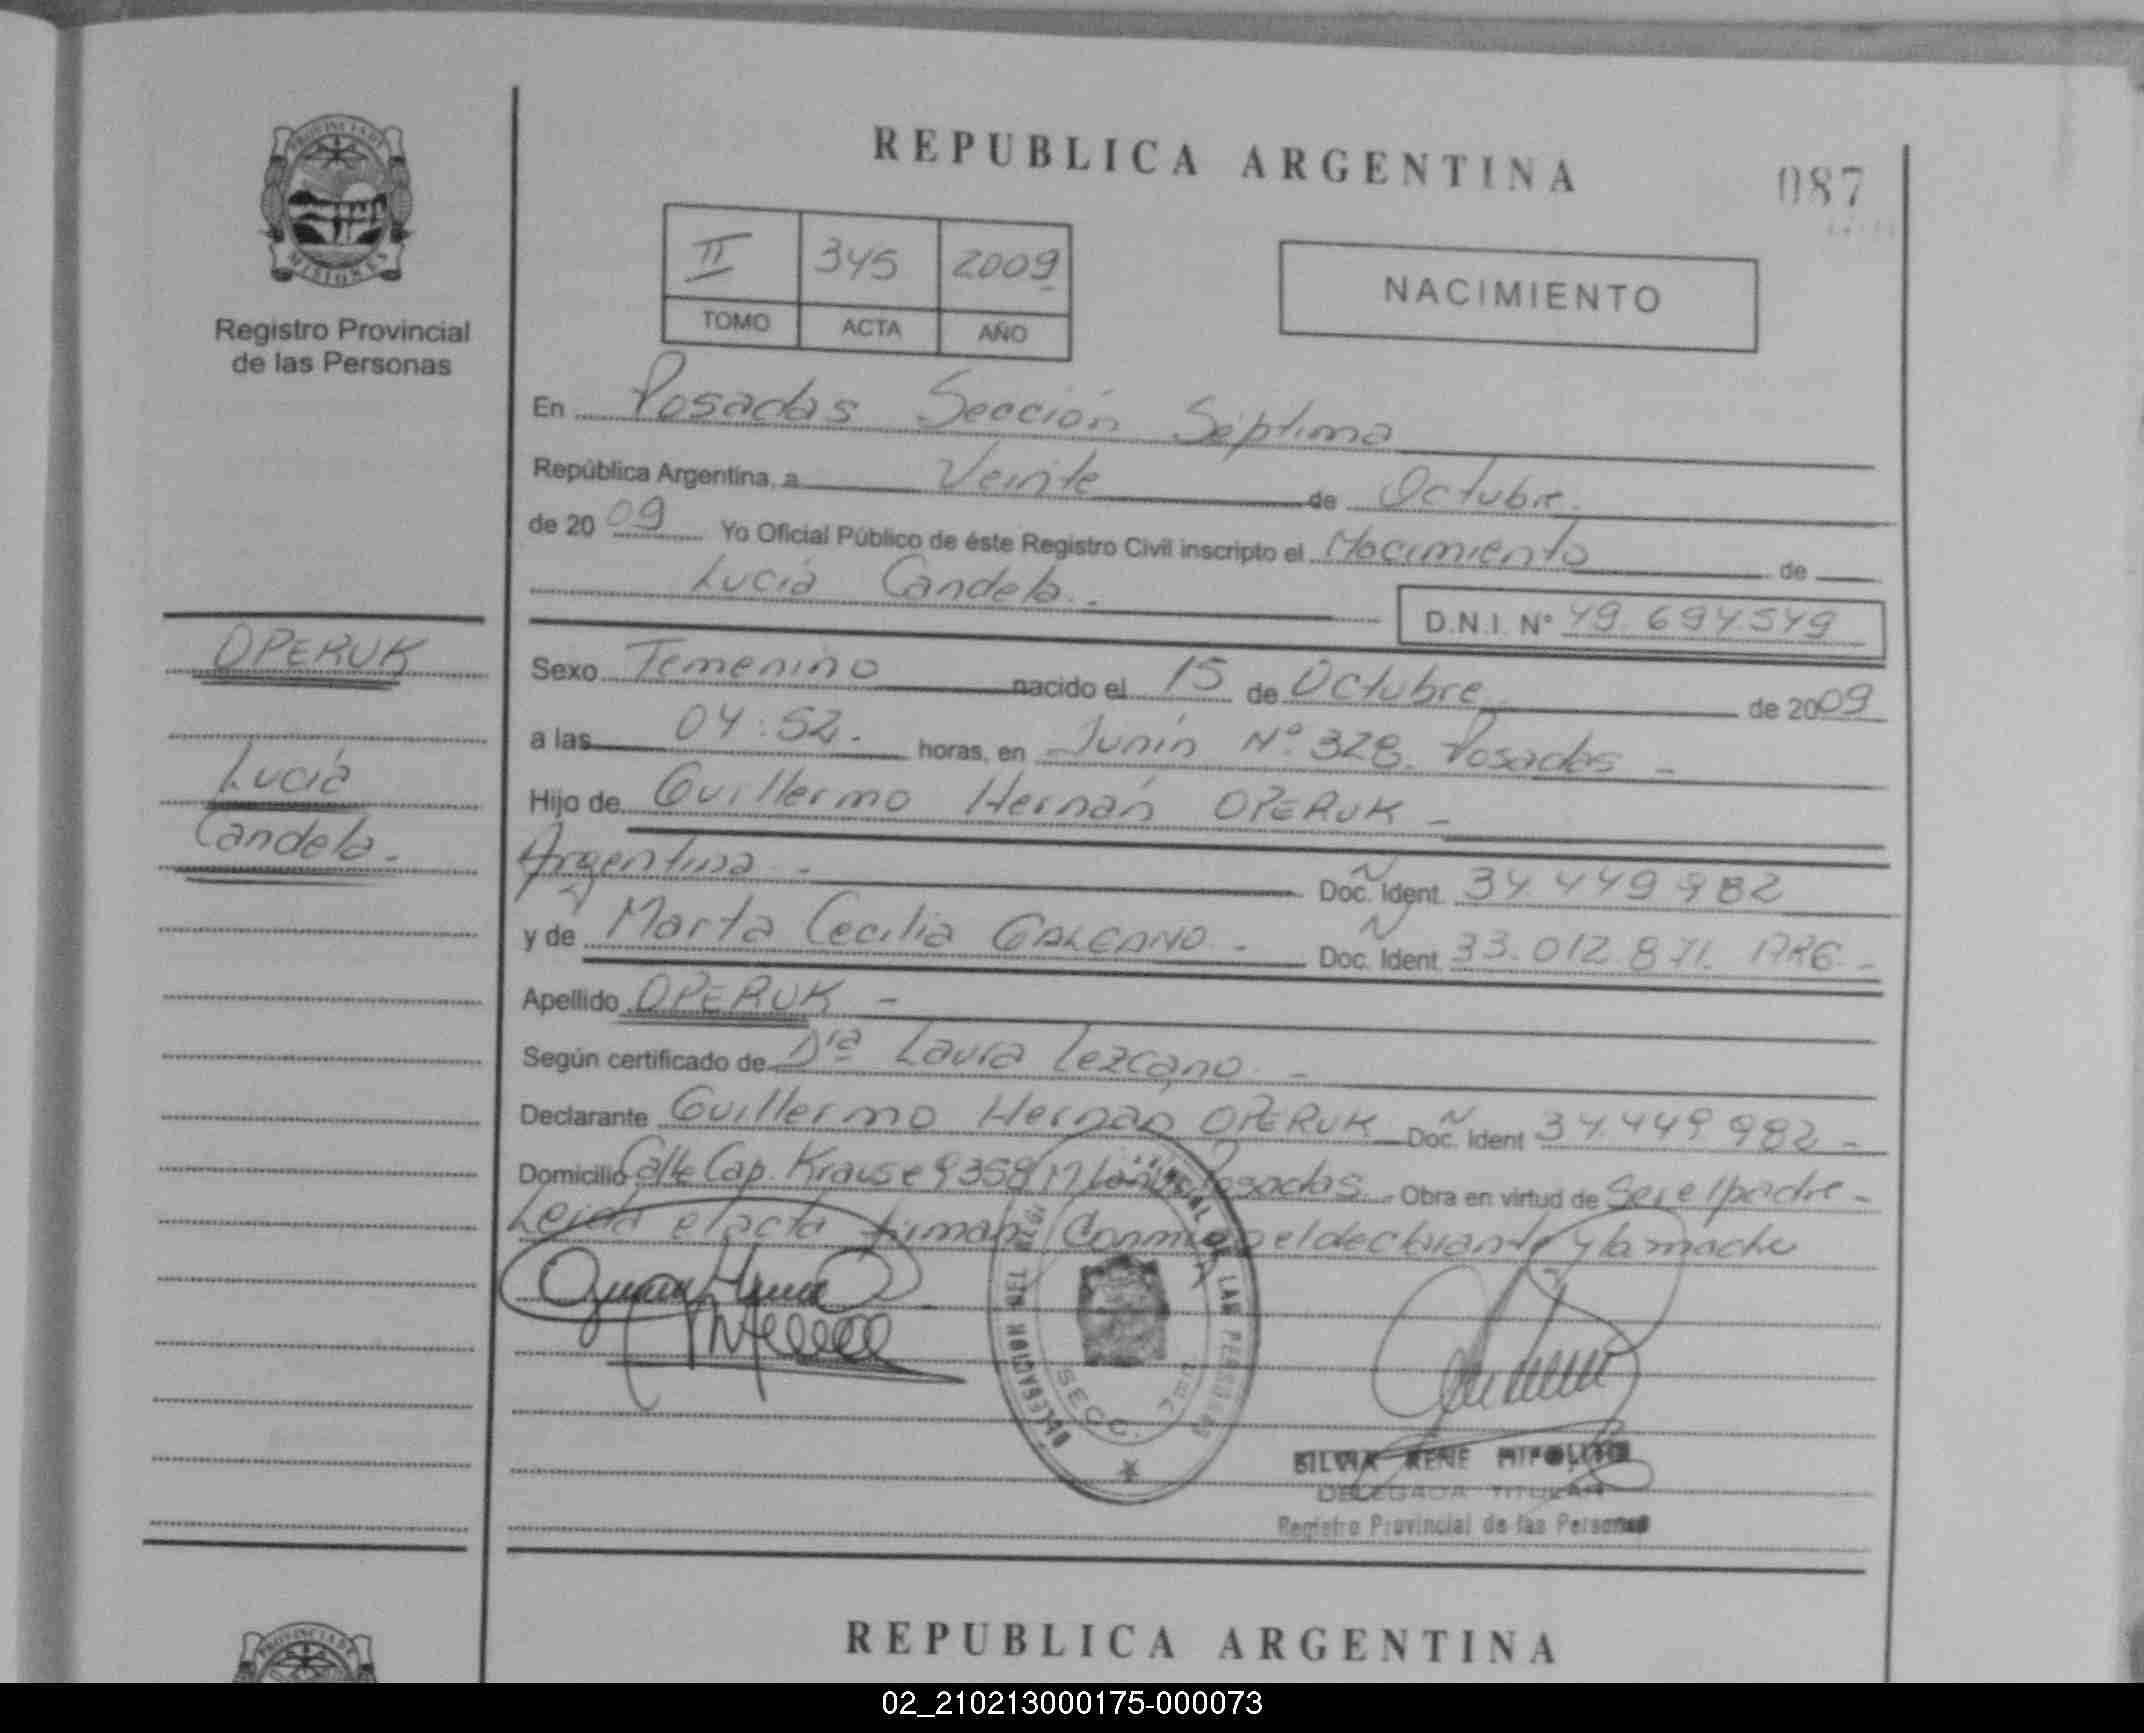 REPUBLICA ARGENTINA
087
PROVINCIA DE
MISIONES
Registro Provincial
de las Personas
II 345 2009
TOMO ACTA AÑO
NACIMIENTO
En Posadas Sección Séptima
República Argentina, a Veinte de Octubre.
de 2009 Yo Oficial Público de éste Registro Civil inscripto el Nacimiento de
Lucia Candela.-
D.N.I. N° 49.694.549
OPERUK
Lucia
Candela.-
Sexo Femenino nacido el 15 de Octubre de 2009
a las 04:52.- horas, en Junín N° 328. Posadas -
Hijo de Guillermo Hernán OPERUK -
Argentina - Doc. Ident. 34.449.982
y de Marta Cecilia GALEANO - Doc. Ident. 33.012.871. ARG.-
Apellido OPERUK -
Según certificado de Dra Laura Lezcano. -
Declarante Guillermo Hernán OPERUK Doc. Ident 34.449.982 -
Domicilio Calle Cap. Krause 9358 Posadas. Obra en virtud de Ser el padre -
Leida el acta firman Conmigo el declarante y la madre
SECC.
SILVIA RENE HIPOLITO
DELEGADA TITULAR
Registro Provincial de las Personas
REPUBLICA ARGENTINA
PROVINCIA DE
02_210213000175-000073